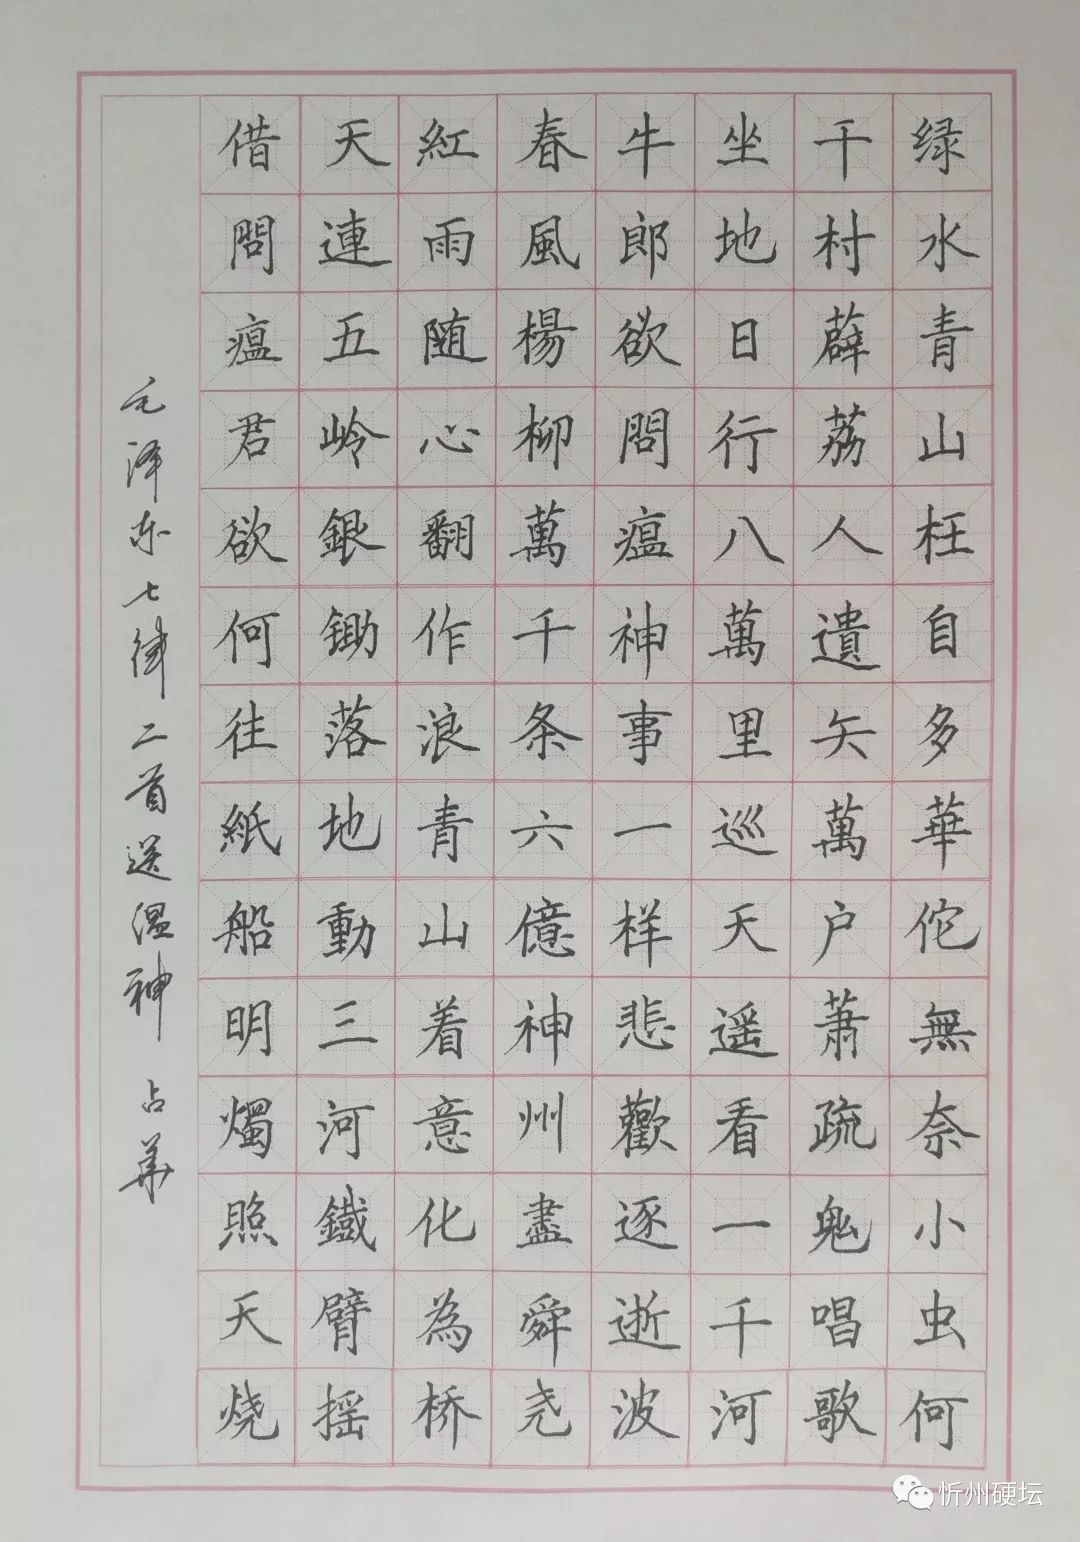 绿水青山枉自多華佗無奈小虫何
千村薜荔人遺矢萬户蕭疏鬼唱歌
坐地日行八萬里巡天遥看一千河
牛郎欲問瘟神事一样悲歡逐逝波
春風楊柳萬千条六億神州盡舜尧
紅雨随心翻作浪青山着意化為桥
天連五岭銀锄落地動三河鐵臂摇
借問瘟君欲何往紙船明燭照天烧
毛泽东七律二首送温神 占华
忻州硬坛